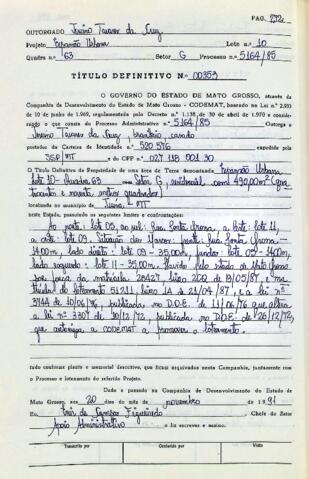 PAG. 252
OUTORGADO Jusino Tavares da Cruz
Projeto Expansão Urbana Lote n.o 10
Quadra n.o 63 Setor G Processo n.o 5164/85
TÍTULO DEFINITIVO N.o 00353
O GOVERNO DO ESTADO DE MATO GROSSO, através da
Companhia de Desenvolvimento do Estado de Mato Grosso - CODEMAT, baseado na Lei n.o 2.933
de 10 de junho de 1.969, regulamentada pelo Decreto n.o 1.138, de 30 de abril de 1.970 e conside-
rando o que consta do Processo Administrativo n.o 5164/85 Outorga a
Tavares da Cruz, brasileiro, casado
portador da Carteira de Identidade n.o 520.576 expedida pela
SSP MT e do CPF n.o 027 118 001 30
O Título Definitivo de Propriedade de uma área de Terra denominada Expansão Urbana
Lote 10 - Quadra 63 - Setor G, residencial com 490,00m² (qua
trocentos e noventa metros quadrados)
localizada no município de Juína - MT
neste Estado, passando os seguintes limites e confrontações:
Ao norte: lote 05, ao sul: Rua Ponta Grossa, a leste: lote 11,
a oeste: lote 09. Situação dos Marcos: frente: Rua Ponta Grossa -
14.00m, lado direito: lote 09 - 35.00m, fundos: lote 05 - 14.00m,
lado esquerdo: lote 11 - 35.00m. Havido pelo Estado de Mato Grosso
por força da matrícula 28427, livro 2CQ de 13/05/87, e ma
trícula do loteamento 51211, livro 1A de 21/09/87, e a lei nº
3744 de 10/06/76, publicada no D.O.E. de 11/06/76 que altera
a lei nº 3307 de 18/12/72, publicada no D.O.E. de 26/12/72,
que autoriza a CODEMAT a promover o loteamento.
tudo conforme planta e memorial descritivo, que ficam arquivados nesta Companhia, juntamente com
o Processo e loteamento do referido Projeto.
Dado e passado na Companhia de Desenvolvimento do Estado de
Mato Grosso, aos 20 dias do mês de novembro de 1991
Eu, Inês de Campos Figueiredo, Chefe do Setor
Apoio Administrativo o fiz escrever e assino.
Transcrito por Conferido por Visto